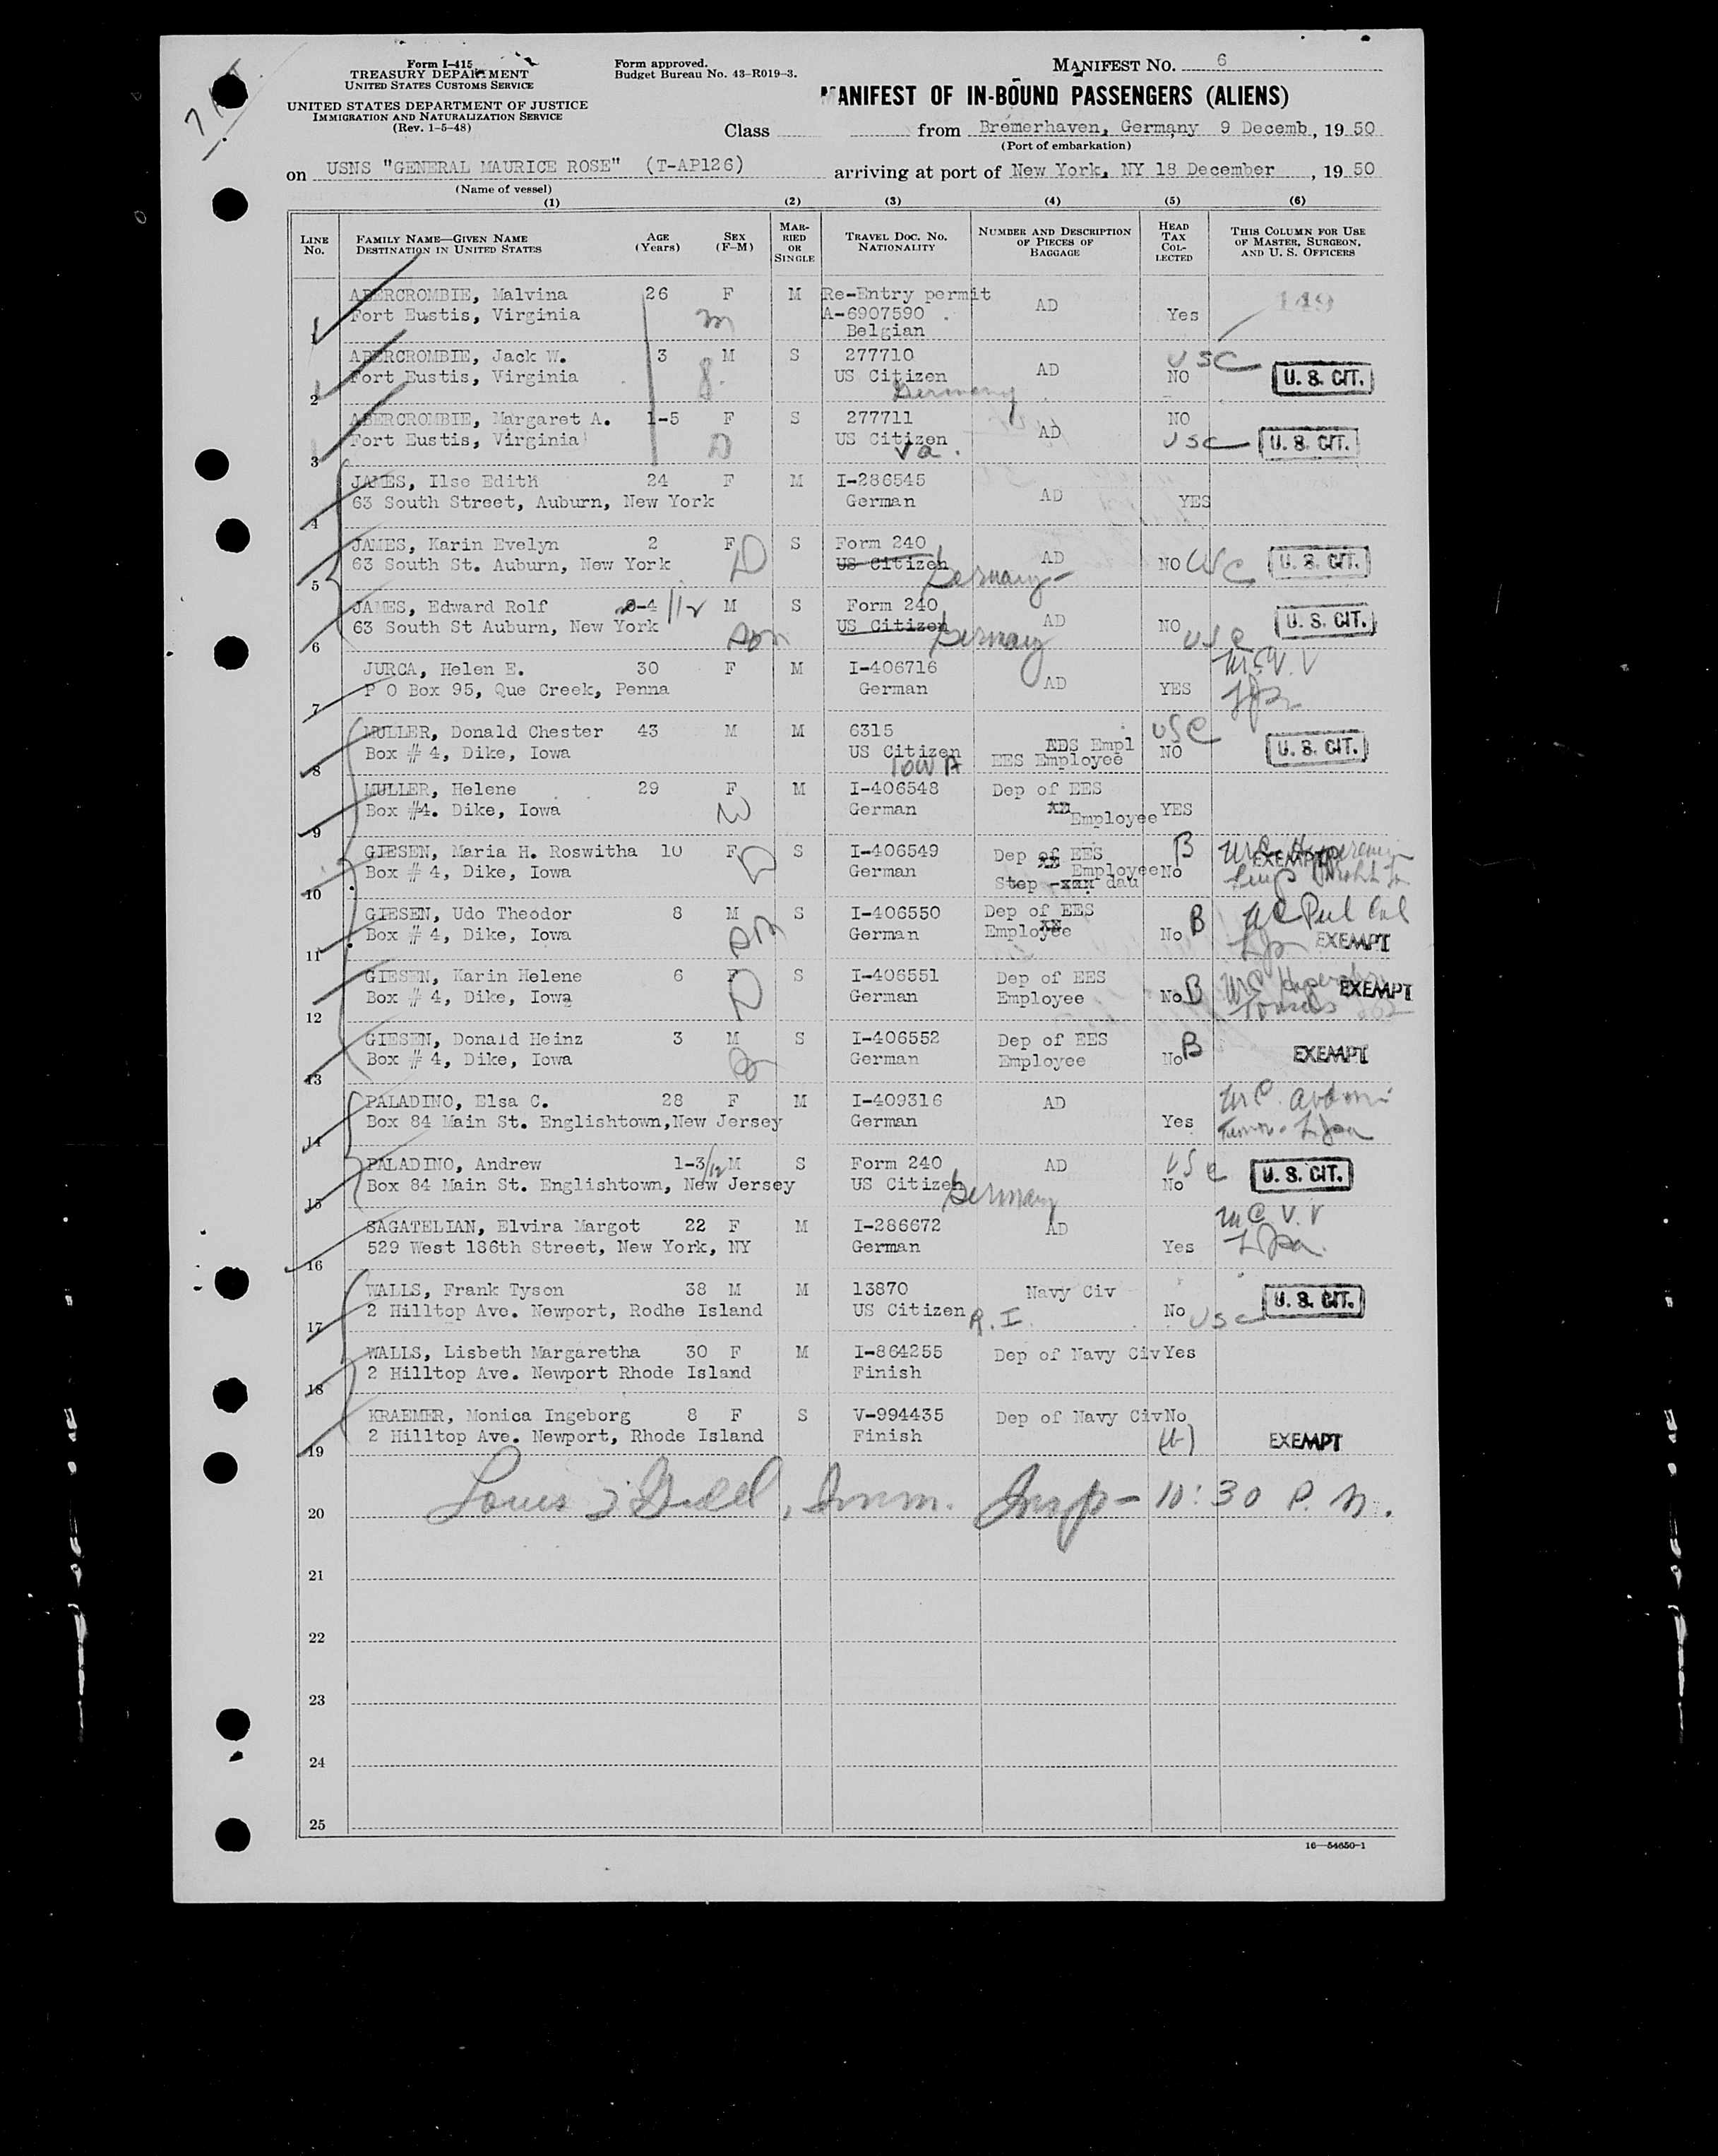 Form I-415
TREASURY DEPARTMENT
UNITED STATES CUSTOMS SERVICE
UNITED STATES DEPARTMENT OF JUSTICE
IMMIGRATION AND NATURALIZATION SERVICE
(Rev. 1-5-48)
Form approved.
Budget Bureau No. 43-R019-3.
MANIFEST NO. 6
MANIFEST OF IN-BOUND PASSENGERS (ALIENS)
Class from Bremerhaven, Germany 9 Decemb, 19 50
(Port of embarkation)
on USNS "GENERAL MAURICE ROSE" (T-AP126) arriving at port of New York, NY 18 December, 19 50
(Name of vessel)
(1) (2) (3) (4) (5) (6)
LINE NO. FAMILY NAME—GIVEN NAME DESTINATION IN UNITED STATES AGE (Years) SEX (F-M) MARRIED OR SINGLE TRAVEL DOC. NO. NATIONALITY NUMBER AND DESCRIPTION OF PIECES OF BAGGAGE HEAD TAX COLLECTED THIS COLUMN FOR USE OF MASTER, SURGEON, AND U. S. OFFICERS
ABERCROMBIE, Malvina 26 F M Re-Entry permit AD 149
Fort Eustis, Virginia m A-6907590 Yes
1 Belgian
ABERCROMBIE, Jack W. 3 M S 277710 AD USC
Fort Eustis, Virginia US Citizen NO U. S. CIT.
2 Germany
ABERCROMBIE, Margaret A. 1-5 F S 277711 AD NO
Fort Eustis, Virginia D US Citizen USC U. S. CIT.
3 Va.
JAMES, Ilse Edith 24 F M I-286545 AD
63 South Street, Auburn, New York German YES
4
JAMES, Karin Evelyn 2 F D S Form 240 AD
63 South St. Auburn, New York US Citizen NO USC U. S. CIT.
5 Germany
JAMES, Edward Rolf 0-4/12 M S Form 240 AD
63 South St Auburn, New York Son US Citizen Germany NO USC U. S. CIT.
6
JURCA, Helen E. 30 F M I-406716 AD V.V
P O Box 95, Que Creek, Penna German YES
7
MULLER, Donald Chester 43 M M 6315 EDS Empl USC
Box # 4, Dike, Iowa US Citizen EES Employee NO U. S. CIT.
8 IOWA
MULLER, Helene 29 F M I-406548 Dep of EES
Box #4. Dike, Iowa W German Employee YES
9
GIESEN, Maria H. Roswitha 10 F D S I-406549 Dep of EES B
Box # 4, Dike, Iowa German Employee No EXEMPT
10 Step -xxx dau
GIESEN, Udo Theodor 8 M S I-406550 Dep of EES B
Box # 4, Dike, Iowa Son German Employee No EXEMPT
11
GIESEN, Karin Helene 6 F S I-406551 Dep of EES
Box # 4, Dike, Iowa D German Employee No B EXEMPT
12
GIESEN, Donald Heinz 3 M S I-406552 Dep of EES B
Box # 4, Dike, Iowa German Employee No EXEMPT
13
PALADINO, Elsa C. 28 F M I-409316 AD
Box 84 Main St. Englishtown,New Jersey German Yes
14
PALADINO, Andrew 1-3/12 M S Form 240 AD USC
Box 84 Main St. Englishtown, New Jersey US Citizen Germany No U. S. CIT.
15
SAGATELIAN, Elvira Margot 22 F M I-286672 AD V.V
529 West 186th Street, New York, NY German Yes
16
WALLS, Frank Tyson 38 M M 13870 Navy Civ
2 Hilltop Ave. Newport, Rodhe Island US Citizen R.I. No USC U. S. CIT.
17
WALLS, Lisbeth Margaretha 30 F M I-864255 Dep of Navy Civ Yes
2 Hilltop Ave. Newport Rhode Island Finish
18
KRAEMER, Monica Ingeborg 8 F S V-994435 Dep of Navy Civ No
2 Hilltop Ave. Newport, Rhode Island Finish EXEMPT
19
20 Louis Imm. Insp- 10:30 P. M.
21
22
23
24
25
16-54650-1